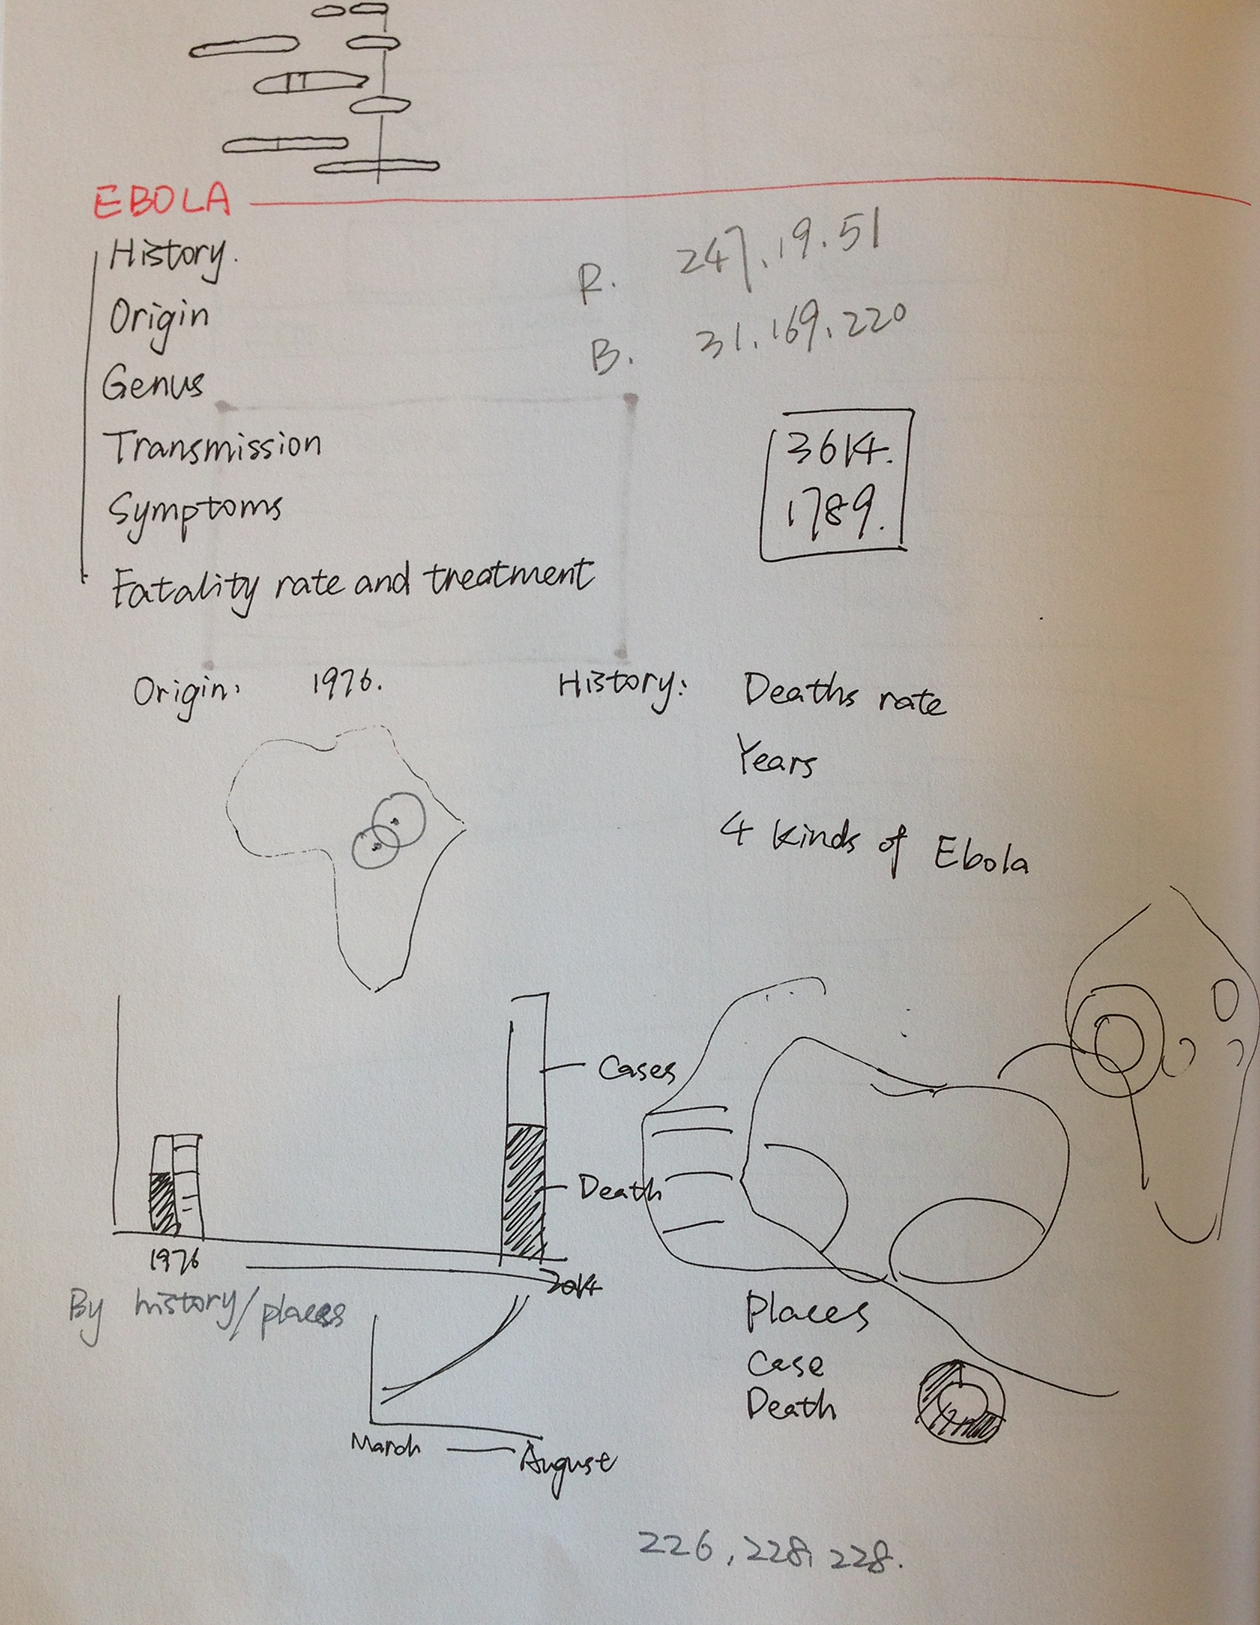 EBOLA
History.
Origin
Genus
Transmission
Symptoms
Fatality rate and treatment
R. 247.19.51
B. 31.169.220
3614.
1789.
Origin: 1976.
History: Deaths rate
Years
4 kinds of Ebola
Cases
Death
1976
2014
By history/places
March — August
Places
Case
Death
226, 228, 228.